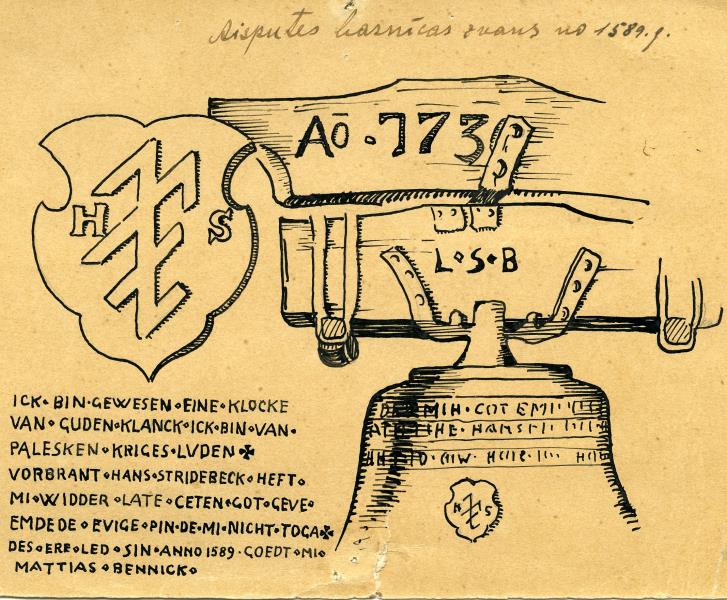 Aisputes baznīcas zvans no 1589.g.
Aō · 1773
H S
L·S·B
ICK·BIN·GEWESEN·EINE·KLOCKE
VAN·GUDEN·KLANCK·ICK·BIN·VAN·
PALESKEN·KRIGES·LVDEN✠
VORBRANT·HANS·STRIDEBECK·HEFT·
MI·WIDDER·LATE·CETEN·GOT·GEVE·
EMDEDE·EVIGE·PIN·DE·MI·NICHT·TOGA✠
DES·ERE·LED·SIN·ANNO 1589·GOEDT·MI·
MATTIAS·BENNICK·
MIH·GOT
H S